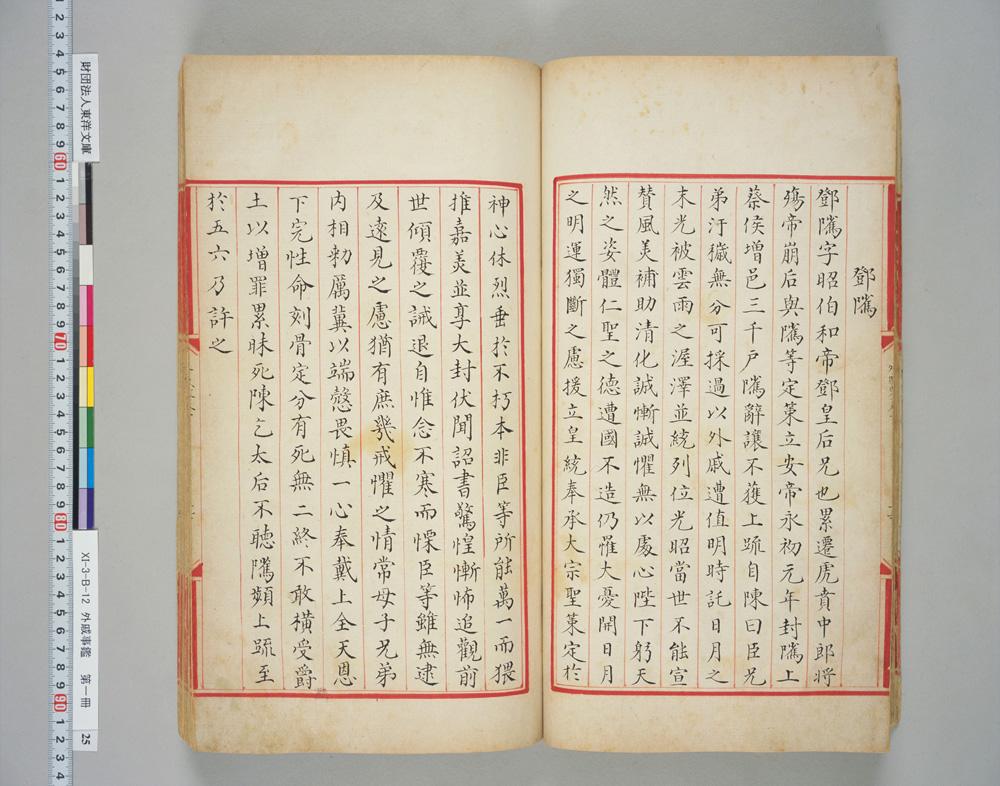 鄧騭
鄧騭字昭伯和帝鄧皇后兄也累遷虎賁中郎將
殤帝崩后與騭等定策立安帝永初元年封騭上
蔡侯增邑三千戶騭辭讓不獲上疏自陳曰臣兄
弟汙穢無分可採過以外戚遭值明時託日月之
末光被雲雨之渥澤並統列位光昭當世不能宣
贊風美補助清化誠慚誠懼無以處心陛下躬天
然之姿體仁聖之德遭國不造仍罹大憂開日月
之明運獨斷之慮援立皇統奉承大宗聖策定於
神心休烈垂於不朽本非臣等所能萬一而猥
推嘉美並享大封伏聞詔書驚惶慚怖追觀前
世傾覆之誡退自惟念不寒而慄臣等雖無逮
及遠見之慮猶有庶幾戒懼之情常母子兄弟
內相勑厲冀以端愨畏慎一心奉戴上全天恩
下完性命刻骨定分有死無二終不敢橫受爵
土以增罪累昧死陳乞太后不聽騭頻上疏至
於五六乃許之
財団法人東洋文庫
XI-3-B-12 外戚事鑑 第一冊
25